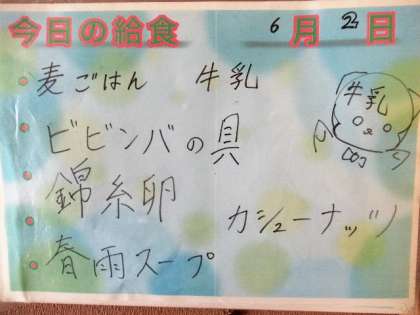 今日の給食 6月2日
麦ごはん 牛乳
牛乳
ビビンバの具
錦糸卵
カシューナッツ
春雨スープ